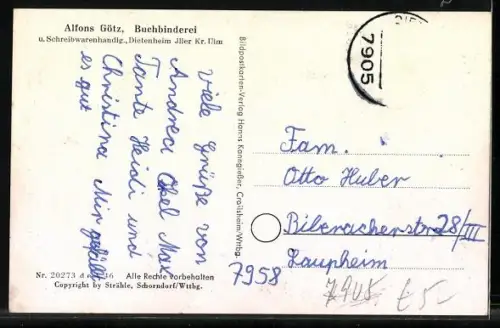 Alfons Götz, Buchbinderei
u. Schreibwarenhandlg., Dietenheim Jller Kr. Ulm
viele Grüße von
Andrea Onkel Max
Tante Heidi und
Christina Mir gefällt
es gut
Bildpostkarten-Verlag Hanns Kanegießer, Crailsheim/Wttbg.
7905
Fam.
Otto Huber
Biberacherstr 28/III
7958 Laupheim
7905. £5-
Nr. 20273 Alle Rechte vorbehalten
Copyright by Strähle, Schorndorf/Wttbg.